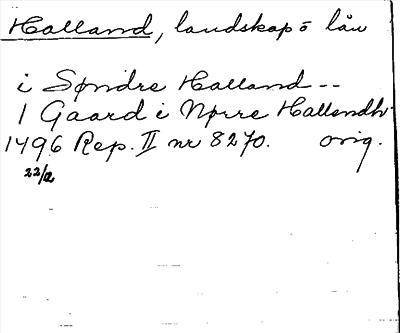 Halland, landskap o län
i Søndre Halland--
1 Gaard i Nørre Hallandh
1496 Rep. II nr 8270. orig.
22/2